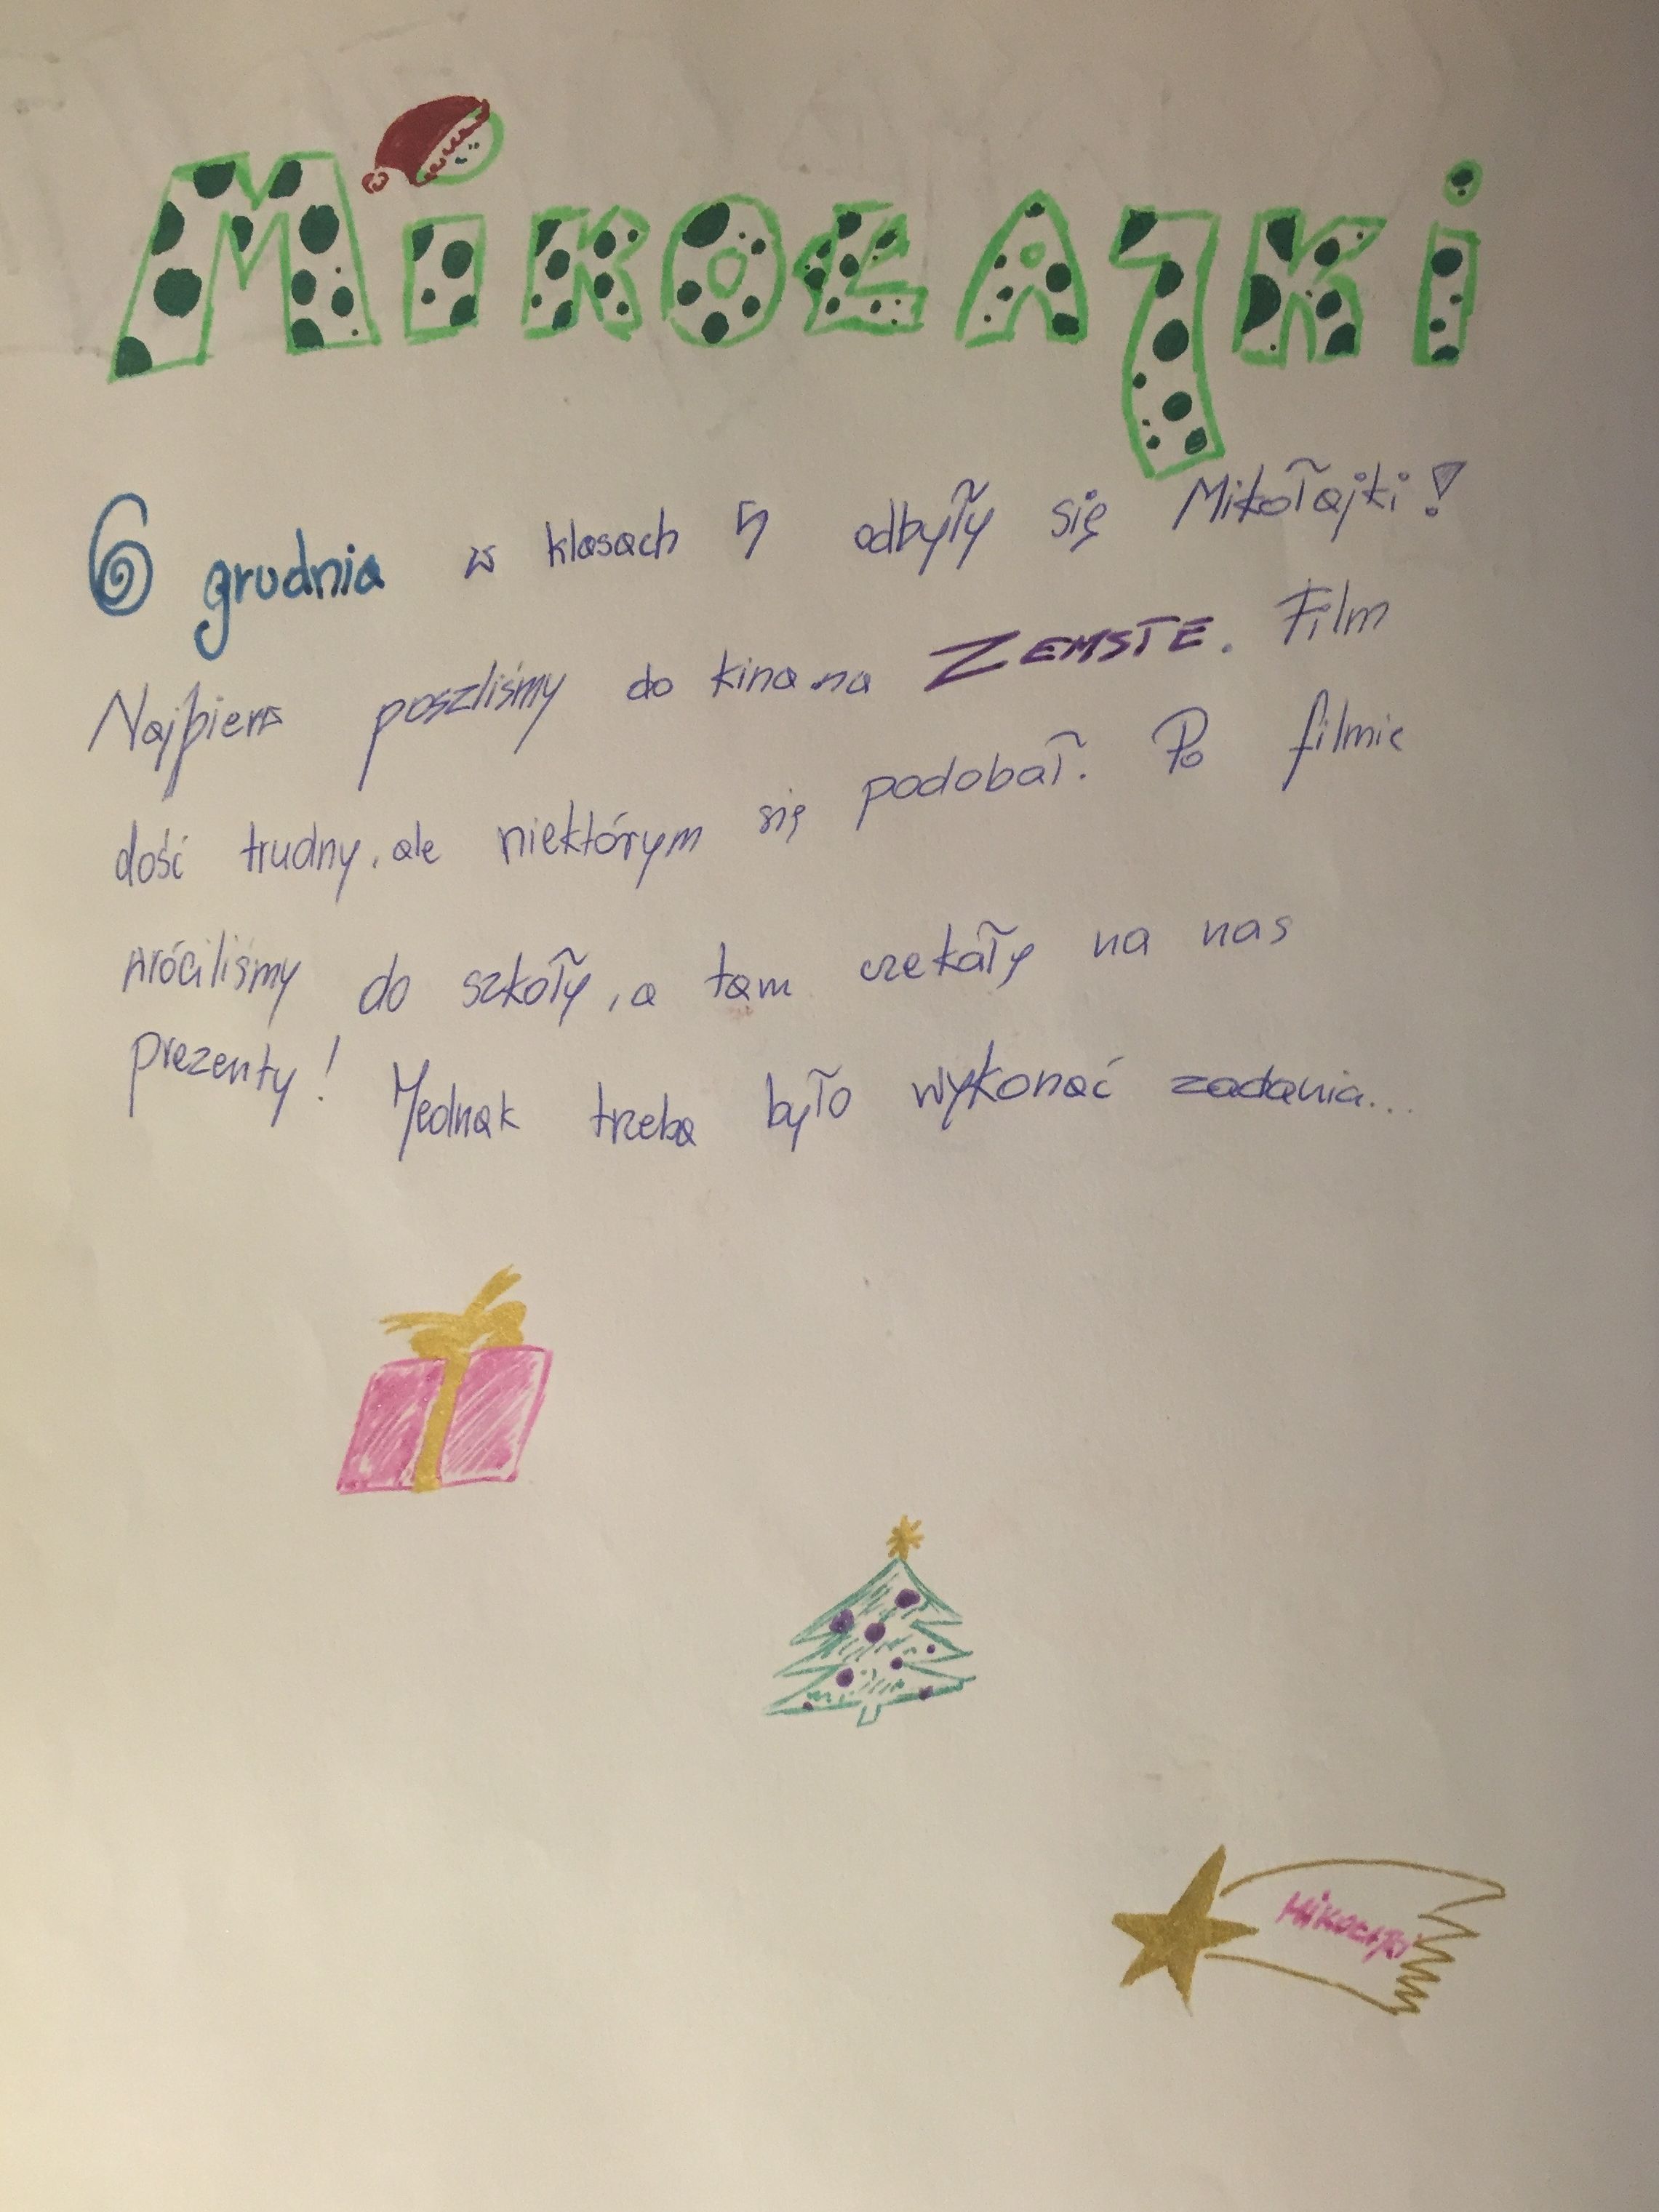 MiKOŁAjKi
6 grudnia w klasach 5 odbyły się Mikołajki!
Najpierw poszliśmy do kina na ZEMSTE. Film
dość trudny, ale niektórym się podobał. Po filmie
wróciliśmy do szkoły, a tam czekały na nas
prezenty! Jednak trzeba było wykonać zadania...
MiKOŁAJKi